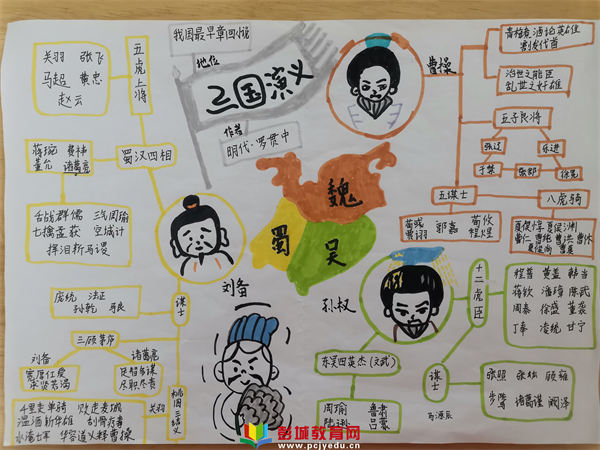 我国最早章回小说
地位
三国演义
作者
明代·罗贯中
五虎上将
关羽 张飞
马超 黄忠
赵云
蜀汉四相
蒋琬 费祎
董允 诸葛亮
舌战群儒 三气周瑜
七擒孟获 空城计
挥泪斩马谡
谋士
庞统 法正
孙乾 马良
三顾茅庐
刘备
宽厚仁爱
求贤若渴
诸葛亮
足智多谋
尽职尽责
桃园三结义
关羽
千里走单骑 败走麦城
温酒斩华雄 刮骨疗毒
水淹七军 华容道义释曹操
刘备
魏
蜀
吴
曹操
青梅煮酒论英雄
割发代首
治世之能臣
乱世之奸雄
五子良将
张辽 乐进
于禁 张郃 徐晃
五谋士
荀彧 郭嘉 荀攸
贾诩 程昱
八虎骑
夏侯惇 夏侯渊
曹仁 曹纯 曹洪 曹休
孙权
东吴四英杰(文武)
周瑜 鲁肃
陆逊 吕蒙
十二虎臣
程普 黄盖 韩当
蒋钦 潘璋 陈武
周泰 徐盛 董袭
丁奉 凌统 甘宁
谋士
张昭 张纮 顾雍
步骘 诸葛瑾 阚泽
彭城教育网
www.pcjyedu.cn